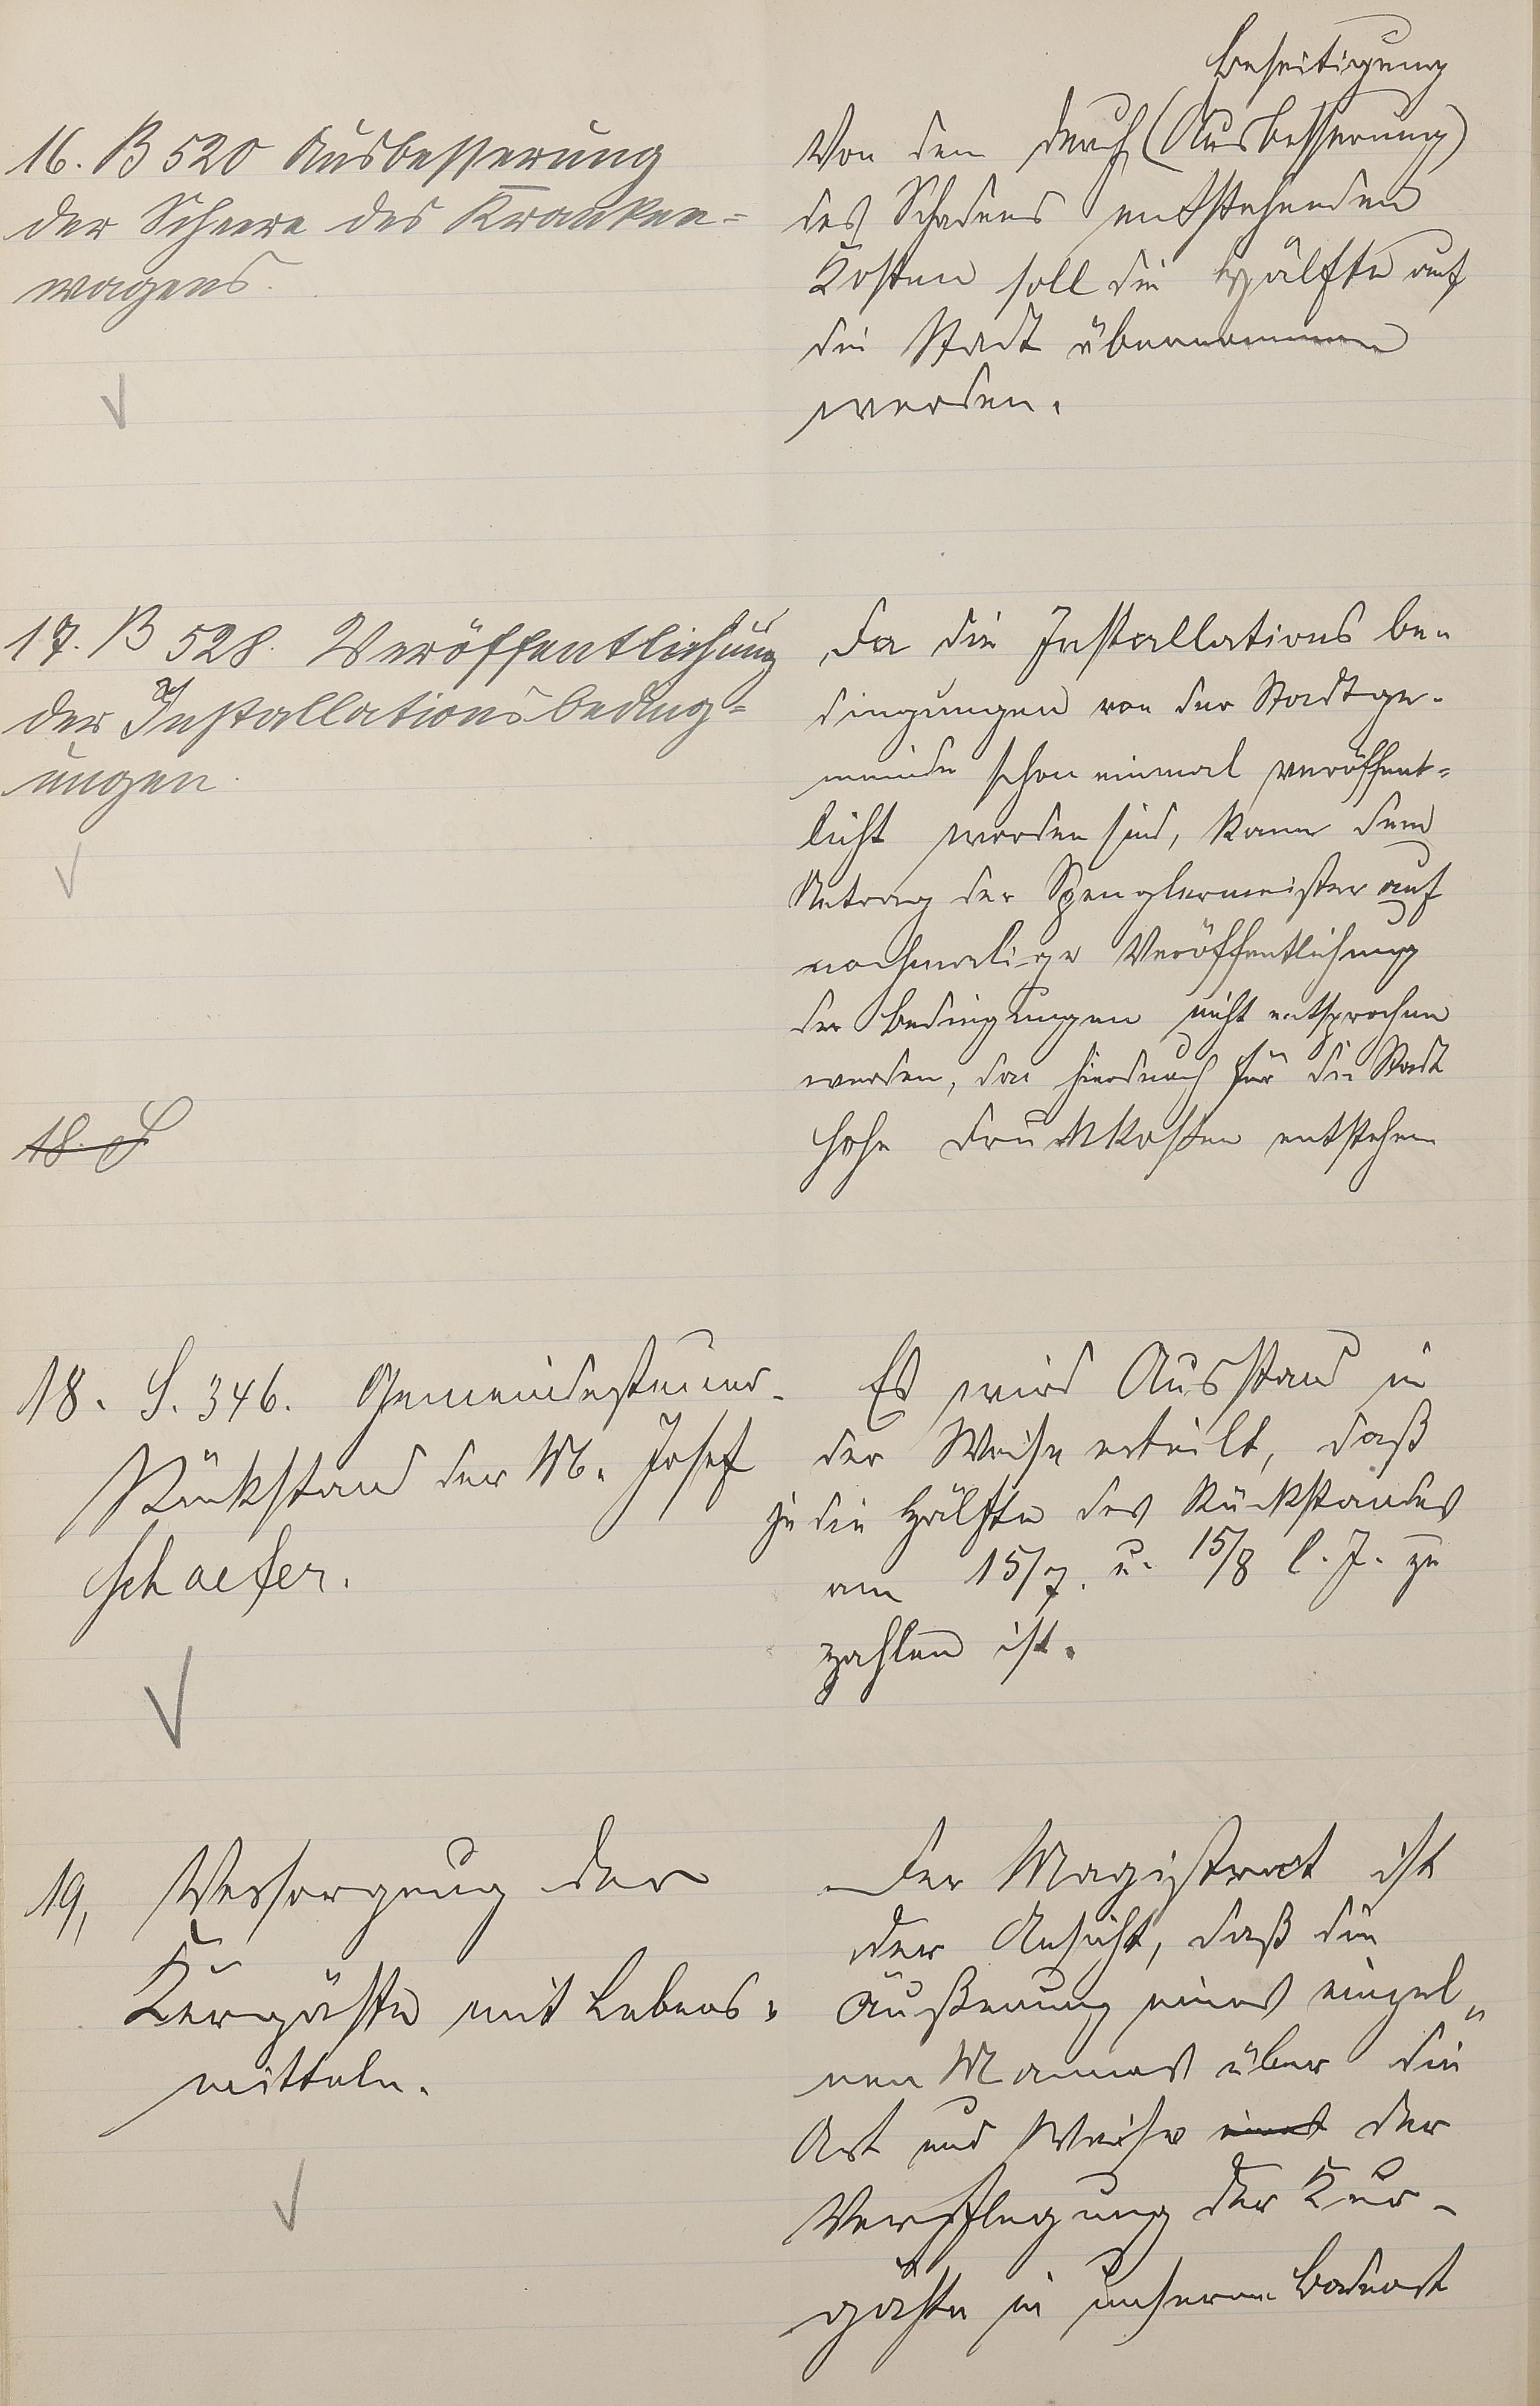 16. B 520 Ausbesserung
der Scheere des Kranken-
wagens.
Beseitigung
Von den durch (Ausbesserung)
des Schadens entstehenden
Kosten soll die Hälfte auf
die Stadt übernommen
werden.
17. B 528. Veröffentlichung
der Installationsbeding-
ungen.
Da die Installations be-
dingungen von der Stadtge-
meinde schon einmal veröffent-
licht worden sind, kann dem
Antrag der Spenglermeister auf
nochmalige Veröffentlichung
der Bedingungen nicht entsprochen
werden, da hierdurch für die Stadt
hohe Druckkosten entstehen
18. S
18. S. 346. Gemeindesteuer-
Rückstand der M. Josef
Schaefer.
Es wird Ausstand in
der Weise erteilt, daß
je die Hälfte des Rückstandes
am 15/7. u. 15/8 l. J. zu
zahlen ist.
19, Versorgung der
Kurgäste mit Lebens-
mitteln.
Der Magistrat ist
der Ansicht, daß die
Äußerung eines einzel-
nen Mannes über die
Art und Weise eines der
Verpflegung der Kur-
gäste in unserem Badeort